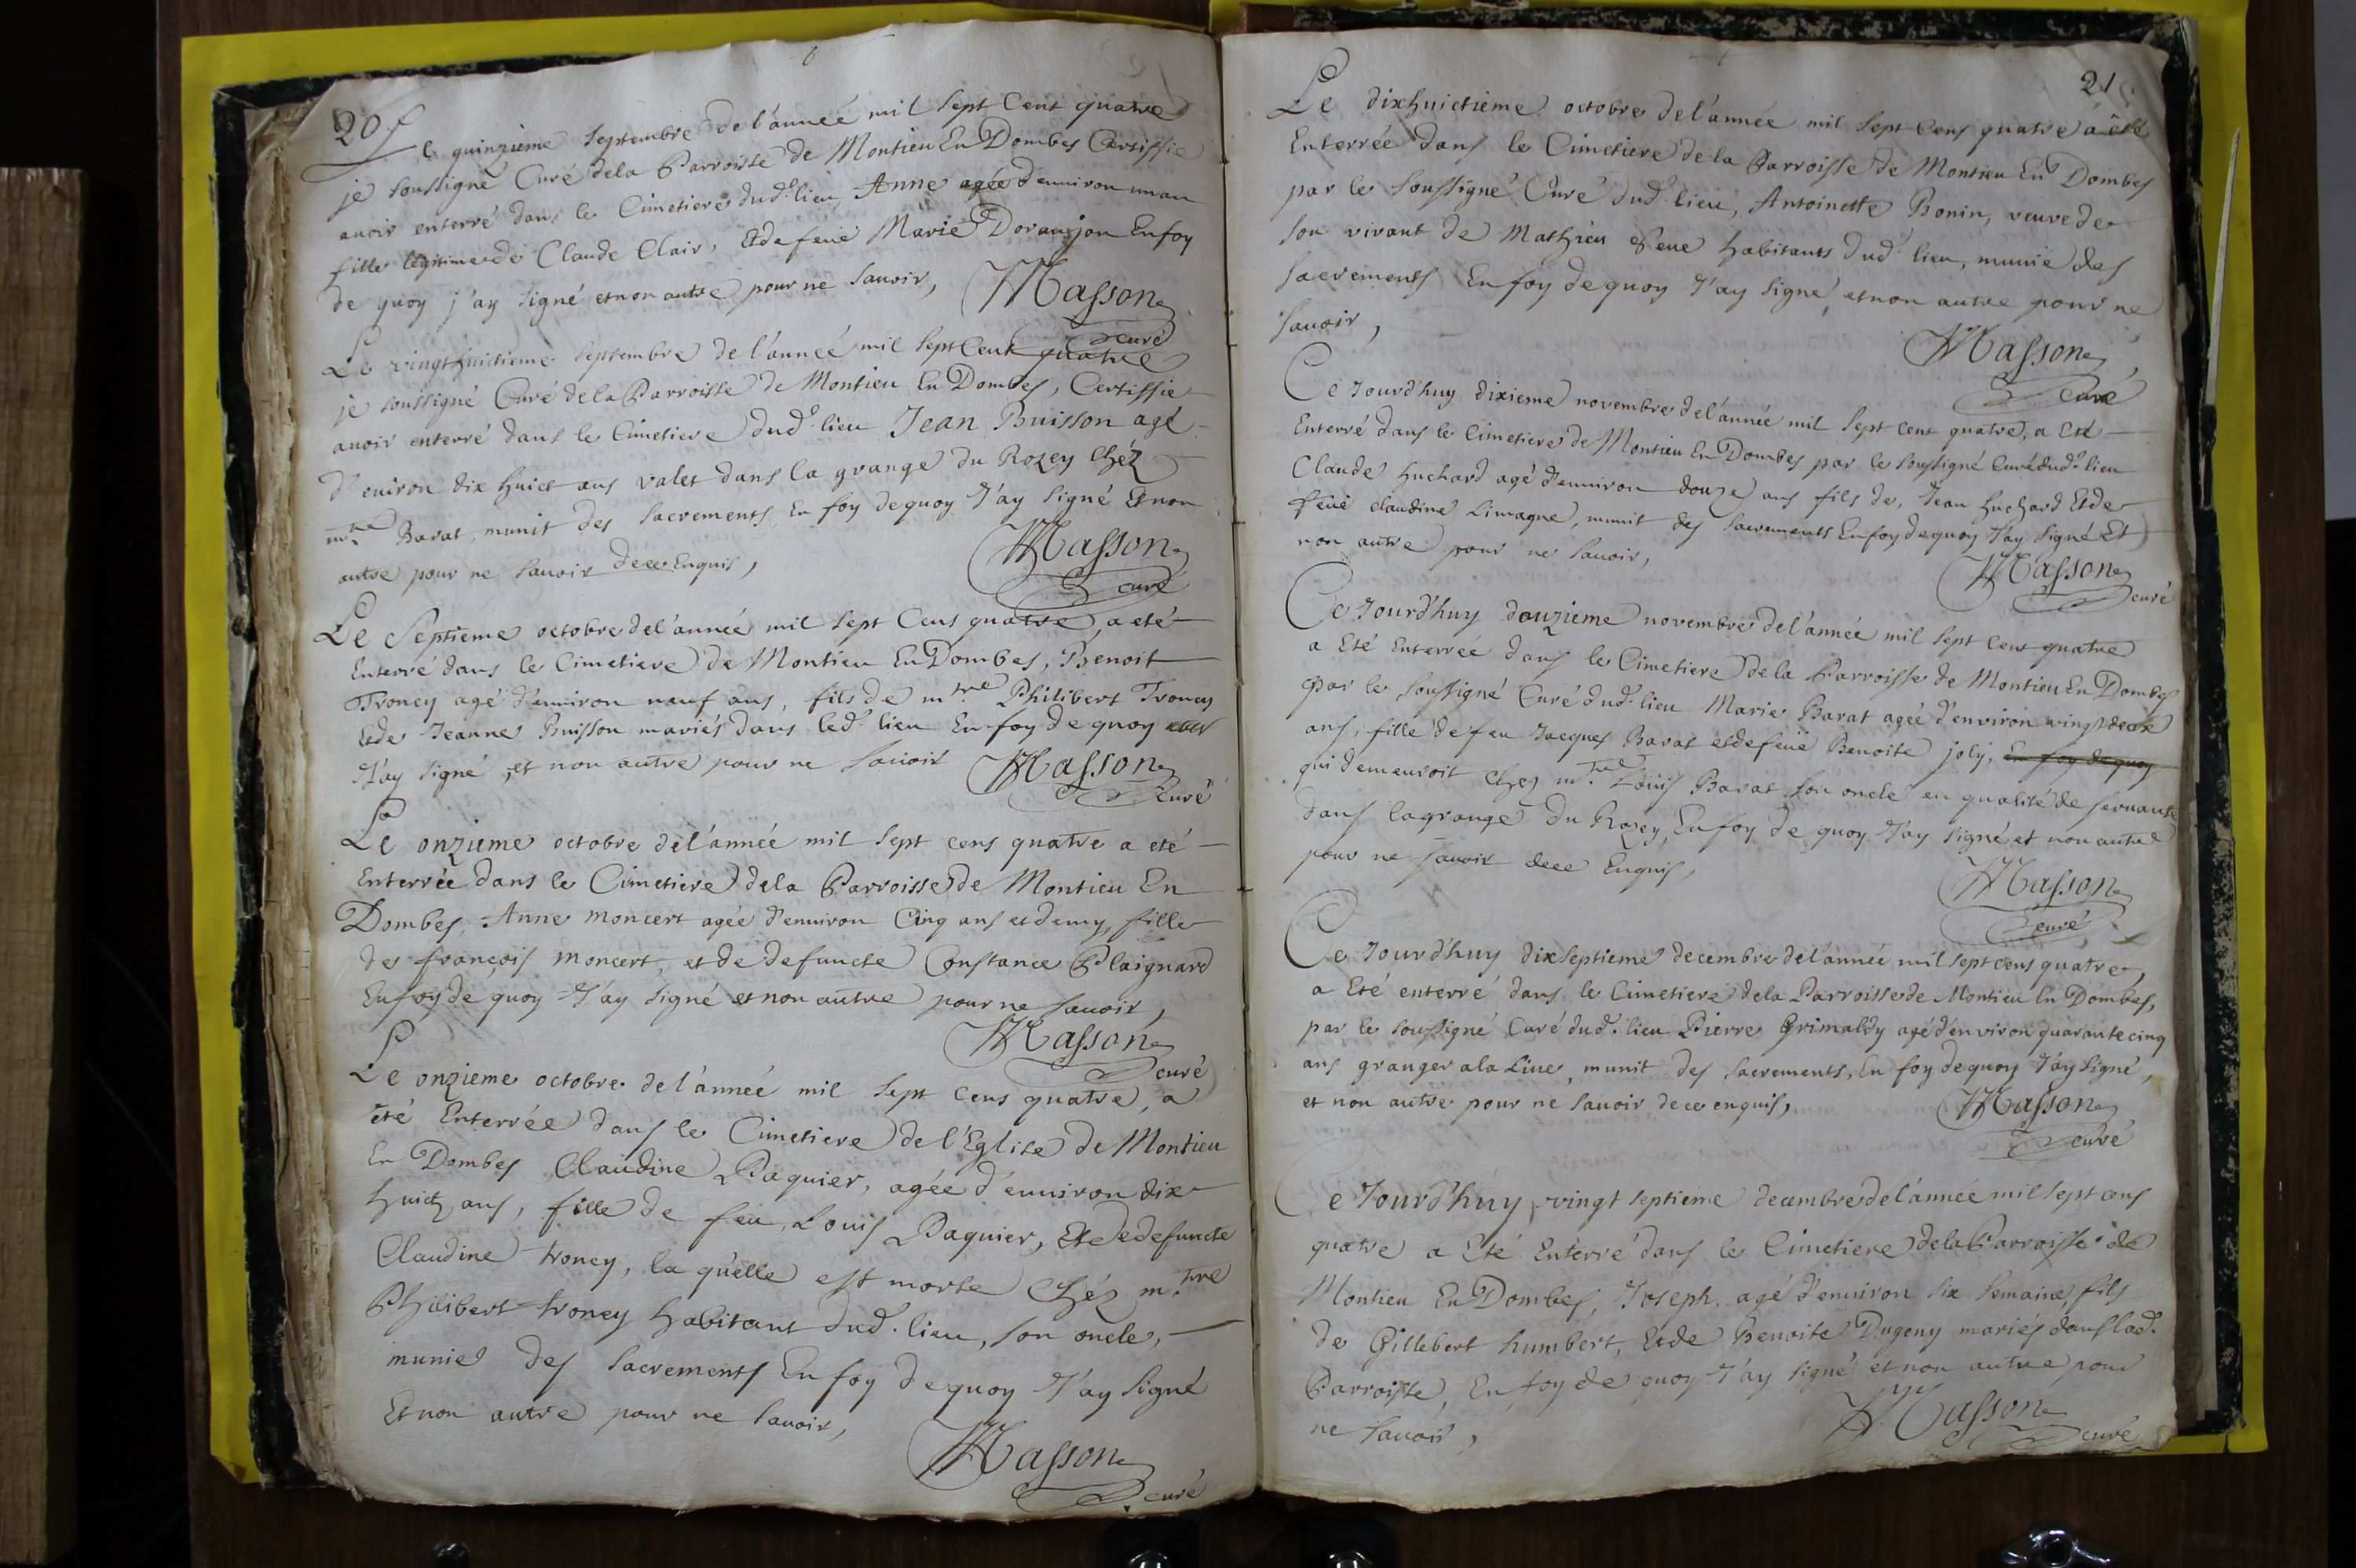 20
Le quinzieme Septembre de l'année mil Sept Cent quatre
je soussigné Curé dela Parroisse de Montieu En Dombes Certiffie
auoir enterré dans le Cimetiere dud. lieu Anne agée d'enuiron un an
fille legitime de Claude Clair, et de feüe Marie Doranjon En foy
de quoy j'ay signé et non autre pour ne sauoir,
Masson
curé
Le vingt huictieme Septembre de l'année mil Sept Cent quatre
je soussigné Curé dela Parroisse de Montieu En Dombes, Certiffie
auoir enterré dans le Cimetiere dud. lieu Jean Buisson agé
d'enuiron dix huict ans valet dans la grange du Rozey chéz
m.re Barat, munit des Sacrements En foy dequoy J'ay Signé Et non
autre pour ne Sauoir dece Enquis,
Masson
curé
Le Septieme octobre del'année mil Sept Cens quatre, a eté
Enterré dans le Cimetiere de Montieu En Dombes, Benoit
Troney agé d'enuiron neuf ans, fils de m.tre Philibert Troney
Et de Jeanne Buisson mariés dans led. lieu En foy de quoy
J'ay signé, et non autre pour ne Sauoir
Masson
curé
Le onzieme octobre del'année mil Sept cens quatre a eté
Enterrée dans le Cimetiere dela Parroisse de Montieu En
Dombes, Anne moncert agée d'enuiron Cinq ans et demy, fille
de françois moncert, et de defuncte Constance Plaignard
En foy de quoy J'ay signé et non autre pour ne Sauoir,
Masson
curé
Le onzieme octobre de l'année mil Sept Cens quatre, a
èté Enterrée dans le Cimetiere de l'Eglise de Montieu
En Dombes Claudine Paquier, agée d'enuiron dix
huict ans, fille de feu Louis Paquier, Et de defuncte
Claudine troney, la quelle est morte Chéz m.tre
Philibert troney habitant dud. lieu, son oncle,
munie des Sacrements En foy de quoy J'ay Signé
Et non autre pour ne Sauoir,
Masson
curé
21
Le dixhuictieme octobre del'année mil Sept Cens quatre a été
Enterrée dans le Cimetiere de la Parroisse de Montieu En Dombes
par le Soussigné Curé dud. lieu, Antoinette Bonin, veuve de
son vivant de Mathieu Peue habitants dud. lieu, munie des
Sacrements En foy de quoy J'ay signé, et non autre pour ne
Sauoir,
Masson
curé
Ce Jourd'huy dixieme novembre del'année mil Sept cent quatre, a Eté
Enterré dans le Cimetiere de Montieu En Dombes par le soussigné Curé dud. lieu
Claude huchard agé d'enuiron douze ans fils de, Jean huchard Et de
feüe claudine Limagne, munit des Sacrements En foy dequoy J'ay Signé Et
non autre pour ne Sauoir,
Masson
curé
Ce Jourd'huy douzieme novembre del'année mil Sept Cens quatre
a Eté Enterrée dans le Cimetiere de la Parroisse de Montieu En Dombes
par le Soussigné Curé dud. lieu Marie Barat agée d'environ vingt deux
ans, fille de feu Jacques Barat et de feüe Benoite joly, En foy de quoy
qui demeuroit chez m.tre Louis Barat son oncle en qualité de seruante
dans la grange du Rozey, En foy de quoy J'ay signé et non autre
pour ne sauoir dece Enquis,
Masson
curé
Ce Jourd'huy dix Septieme decembre del'année mil sept cens quatre,
a Eté enterré dans le Cimetiere dela Parroisse de Montieu En Dombes,
par le soussigné Curé dud. lieu Pierre Grimaldy agé d'environ quarante cinq
ans granger a la Liue, munit des Sacrements, En foy dequoy J'ay Signé,
et non autre pour ne Sauoir dece enquis,
Masson
curé
Ce Jourd'huy, vingt Septieme decembre del'année mil Sept cens
quatre a Eté Enterré dans le Cimetiere dela Parroisse de
Montieu En Dombes, Joseph, agé d'enuiron Six Semaine, fils
de Gillebert humbert, Et de Benoite Dugeny mariés dans lad.
Parroisse, En foy de quoy J'ay signé et non autre pour
ne Sauoir,
Masson
curé